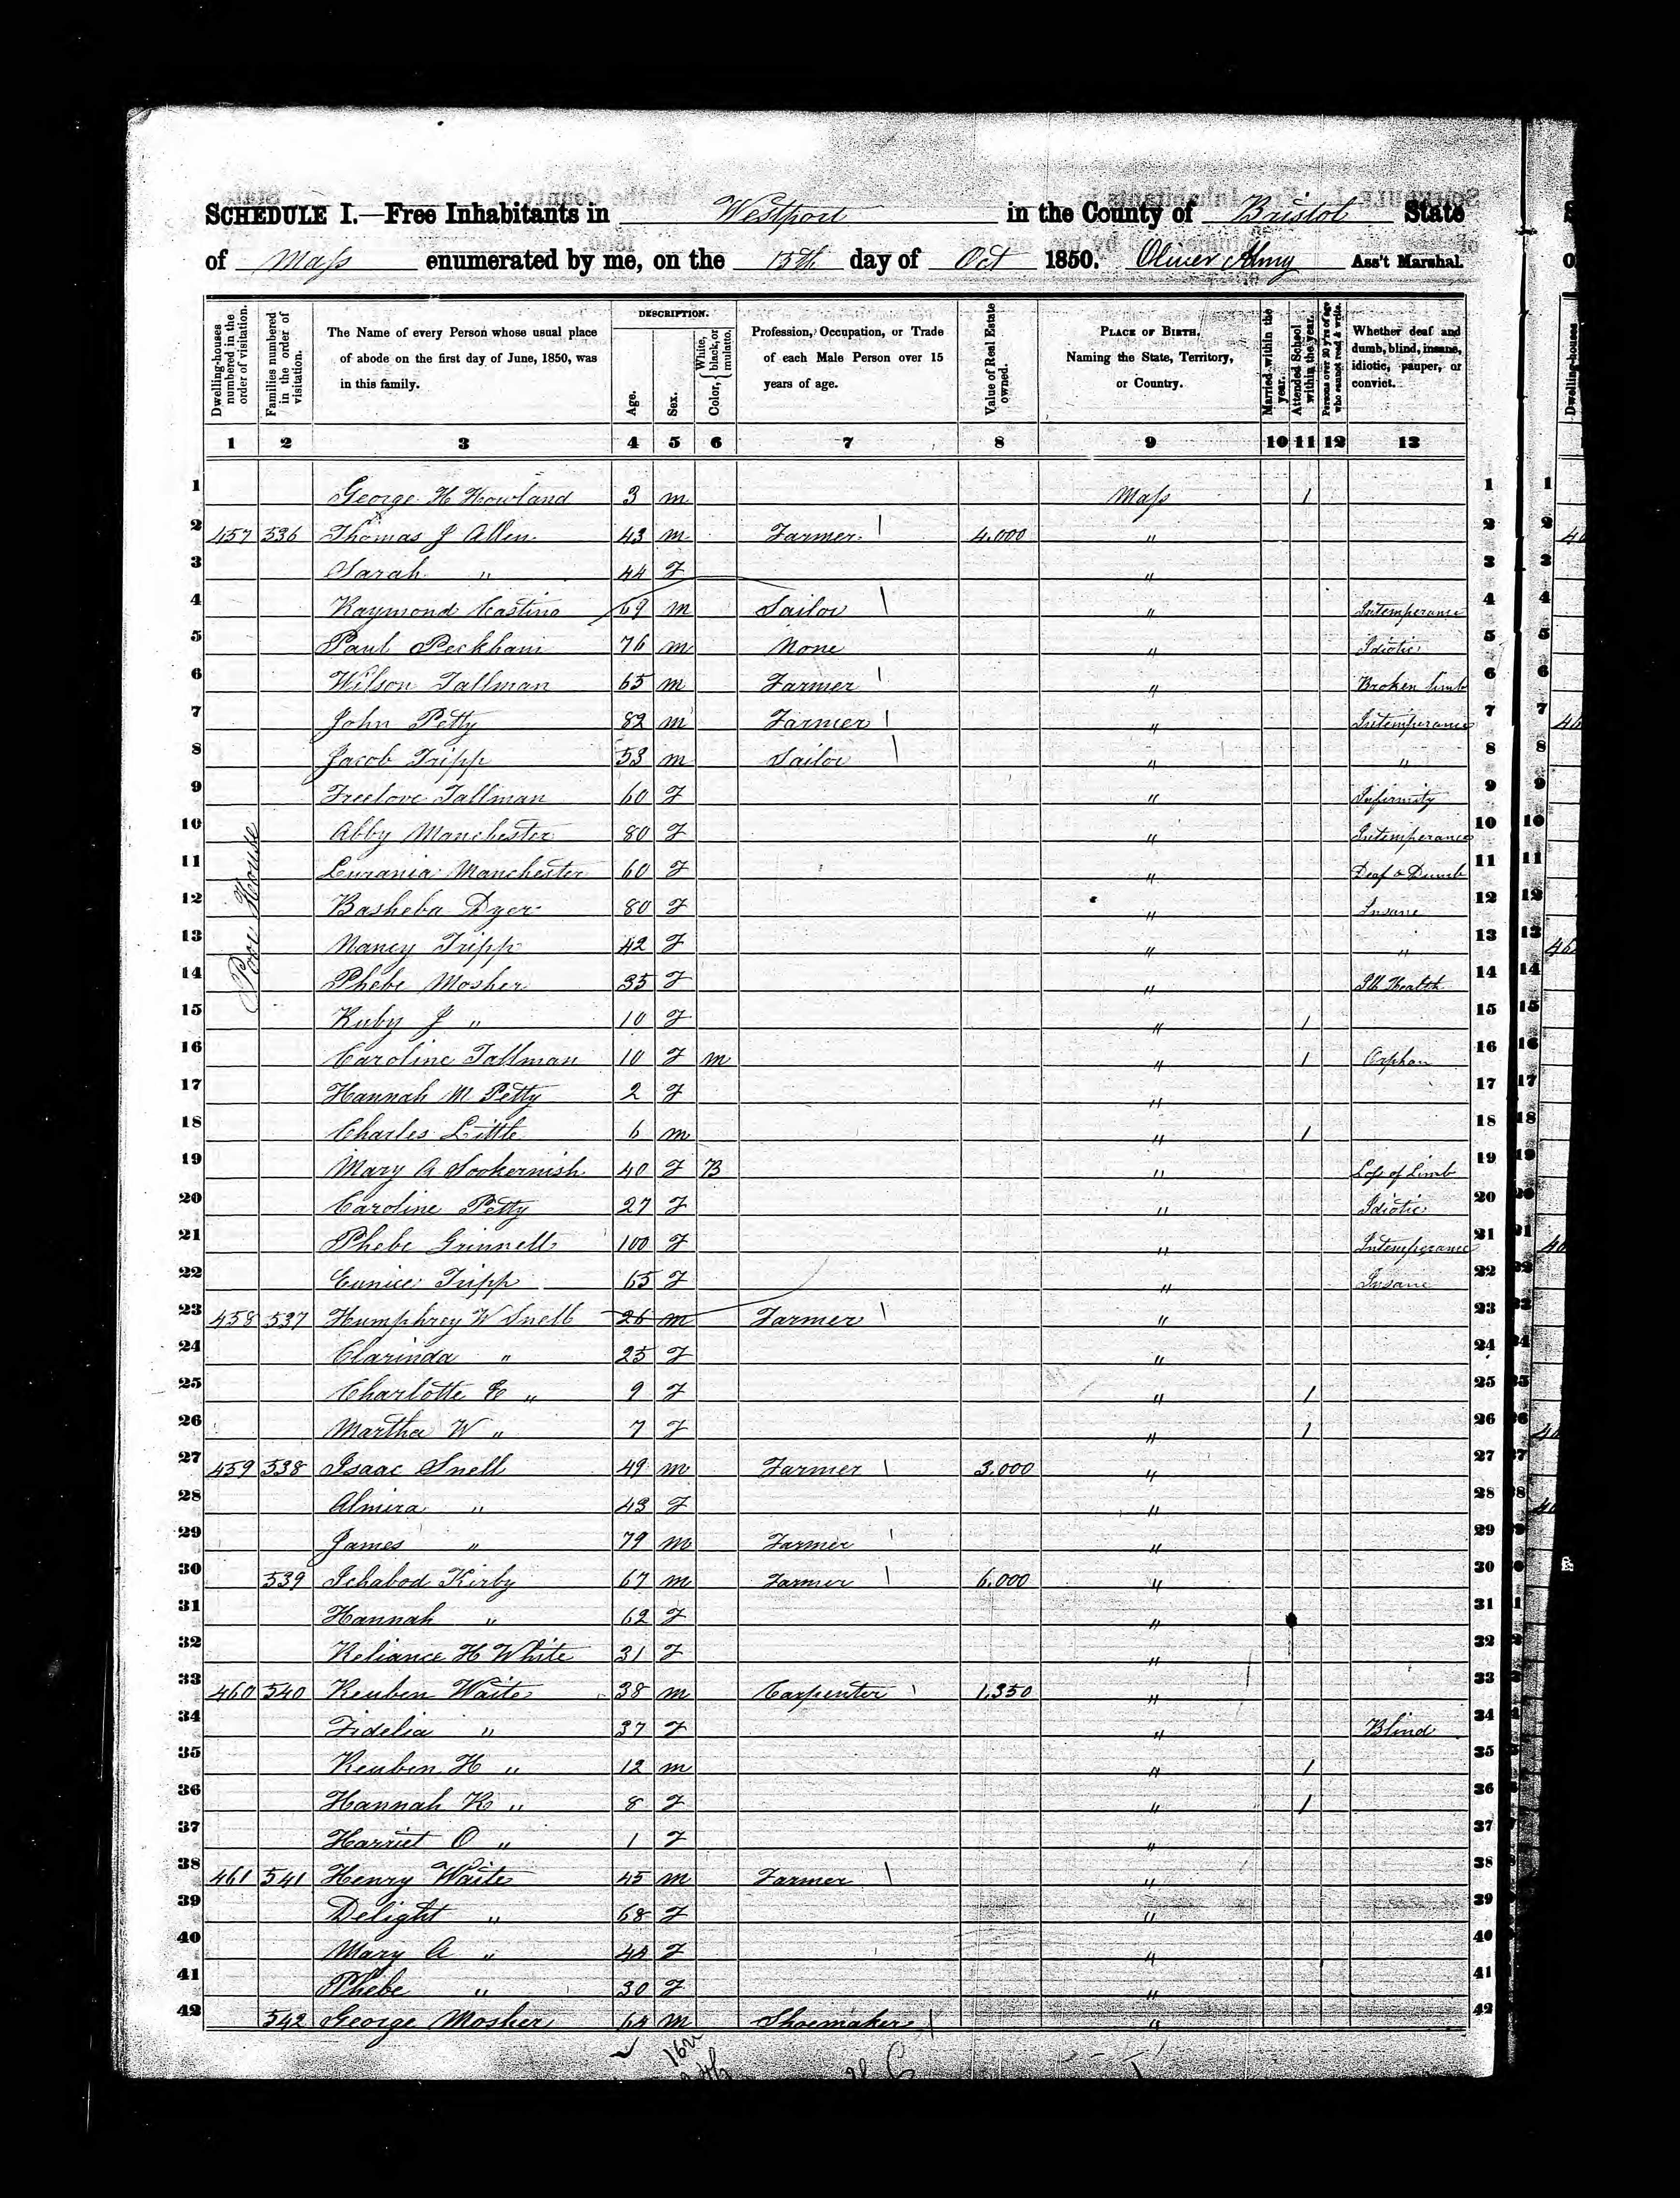 SCHEDULE I.—Free Inhabitants in Westport in the County of Bristol State
of Mass enumerated by me, on the 15th day of Oct 1850. Oliver Almy Ass't Marshal.
Dwelling-houses numbered in the order of visitation.
Families numbered in the order of visitation.
The Name of every Person whose usual place of abode on the first day of June, 1850, was in this family.
DESCRIPTION.
Age.
Sex.
Color, White, black, or mulatto.
Profession, Occupation, or Trade of each Male Person over 15 years of age.
Value of Real Estate owned.
PLACE OF BIRTH. Naming the State, Territory, or Country.
Married within the year.
Attended School within the year.
Persons over 20 y'rs of age who cannot read & write.
Whether deaf and dumb, blind, insane, idiotic, pauper, or convict.
1 2 3 4 5 6 7 8 9 10 11 12 13
1 George H Howland 3 m Mass 1 1
2 457 536 Thomas J Allen 43 m Farmer 1 4.000 " 2
3 Sarah " 44 F " 3
4 Raymond Castino 69 m Sailor 1 " Intemperance 4
5 Paul Peckham 76 m None " Idiotic 5
6 Wilson Tallman 65 m Farmer 1 " Broken limb 6
7 John Petty 82 m Farmer 1 " Intemperance 7
8 Jacob Tripp 53 m Sailor 1 " " 8
9 Freelove Tallman 60 F " Infirmity 9
10 Abby Manchester 80 F " Intemperance 10
11 Lurania Manchester 60 F " Deaf & Dumb 11
12 Basheba Dyer 80 F " Insane 12
13 Nancy Tripp 42 F " " 13
Poor House
14 Phebe Mosher 35 F " Ill Health 14
15 Ruby J " 10 F " 1 15
16 Caroline Tallman 10 F m " 1 Orphan 16
17 Hannah M Petty 2 F " 17
18 Charles Little 6 m " 1 18
19 Mary A Sockernish 40 F B " Loss of Limb 19
20 Caroline Petty 27 F " Idiotic 20
21 Phebe Grinnell 100 F " Intemperance 21
22 Eunice Tripp 65 F " Insane 22
23 458 537 Humphrey W Snell 26 m Farmer 1 " 23
24 Clarinda " 25 F " 24
25 Charlotte E " 9 F " 1 25
26 Martha W " 7 F " 1 26
27 459 538 Isaac Snell 49 m Farmer 1 3.000 " 27
28 Almira " 43 F " 28
29 James " 79 m Farmer 1 " 29
30 539 Ichabod Kirby 67 m Farmer 1 6.000 " 30
31 Hannah " 62 F " 31
32 Reliance H White 31 F " 32
33 460 540 Reuben Waite 38 m Carpenter 1 1.350 " 33
34 Fidelia " 37 F " Blind 34
35 Reuben H " 12 m " 1 35
36 Hannah K " 8 F " 1 36
37 Harriet O " 1 F " 37
38 461 541 Henry Waite 45 m Farmer 1 " 38
39 Delight " 68 F " 39
40 Mary A " 44 F " 40
41 Phebe " 30 F " 41
42 542 George Mosher 64 m Shoemaker 1 " 42